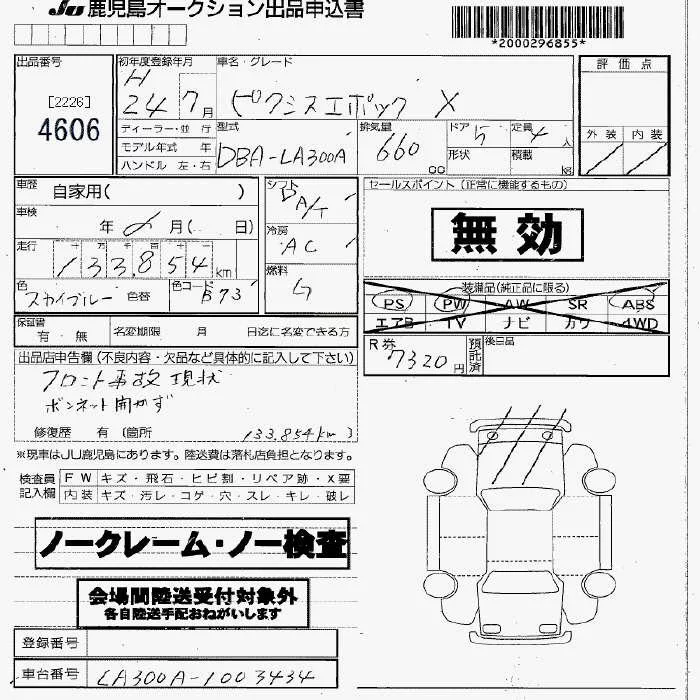 JU鹿児島オークション出品申込書
*2000296855*
出品番号
[2226]
4606
初年度登録年月
H
24 7月
車名・グレード
ピクシスエポック X
評価点
外装 内装
ディーラー・並 行
モデル年式 年
ハンドル 左・右
型式
DBA-LA300A
排気量
660
CC
ドア 5
形状
定員 4人
積載 kg
車歴 自家用( )
車検 年 月( 日)
走行
十 万 千 百 十 一
133,854km
色
スカイブルー 色替
色コード
B73
シフト
DA/T
冷房
AC
燃料
G
セールスポイント(正常に機能するもの)
無効
装備品(純正品に限る)
PS PW AW SR ABS
エアB TV ナビ カワ 4WD
保証書
有・無
名変期限 月 日迄に名変できる方
R券
7320円
預託済
後日品
出品店申告欄(不良内容・欠品など具体的に記入して下さい)
フロント事故現状
ボンネット開かず
修復歴 有 (箇所 133.854km)
※現車はJU鹿児島にあります。陸送費は落札店負担となります。
検査員
記入欄
FW キズ・飛石・ヒビ割・リペア跡・X要
内装 キズ・汚レ・コゲ・穴・スレ・キレ・破レ
ノークレーム・ノー検査
会場間陸送受付対象外
各自陸送手配おねがいします
登録番号
車台番号 LA300A-1003434